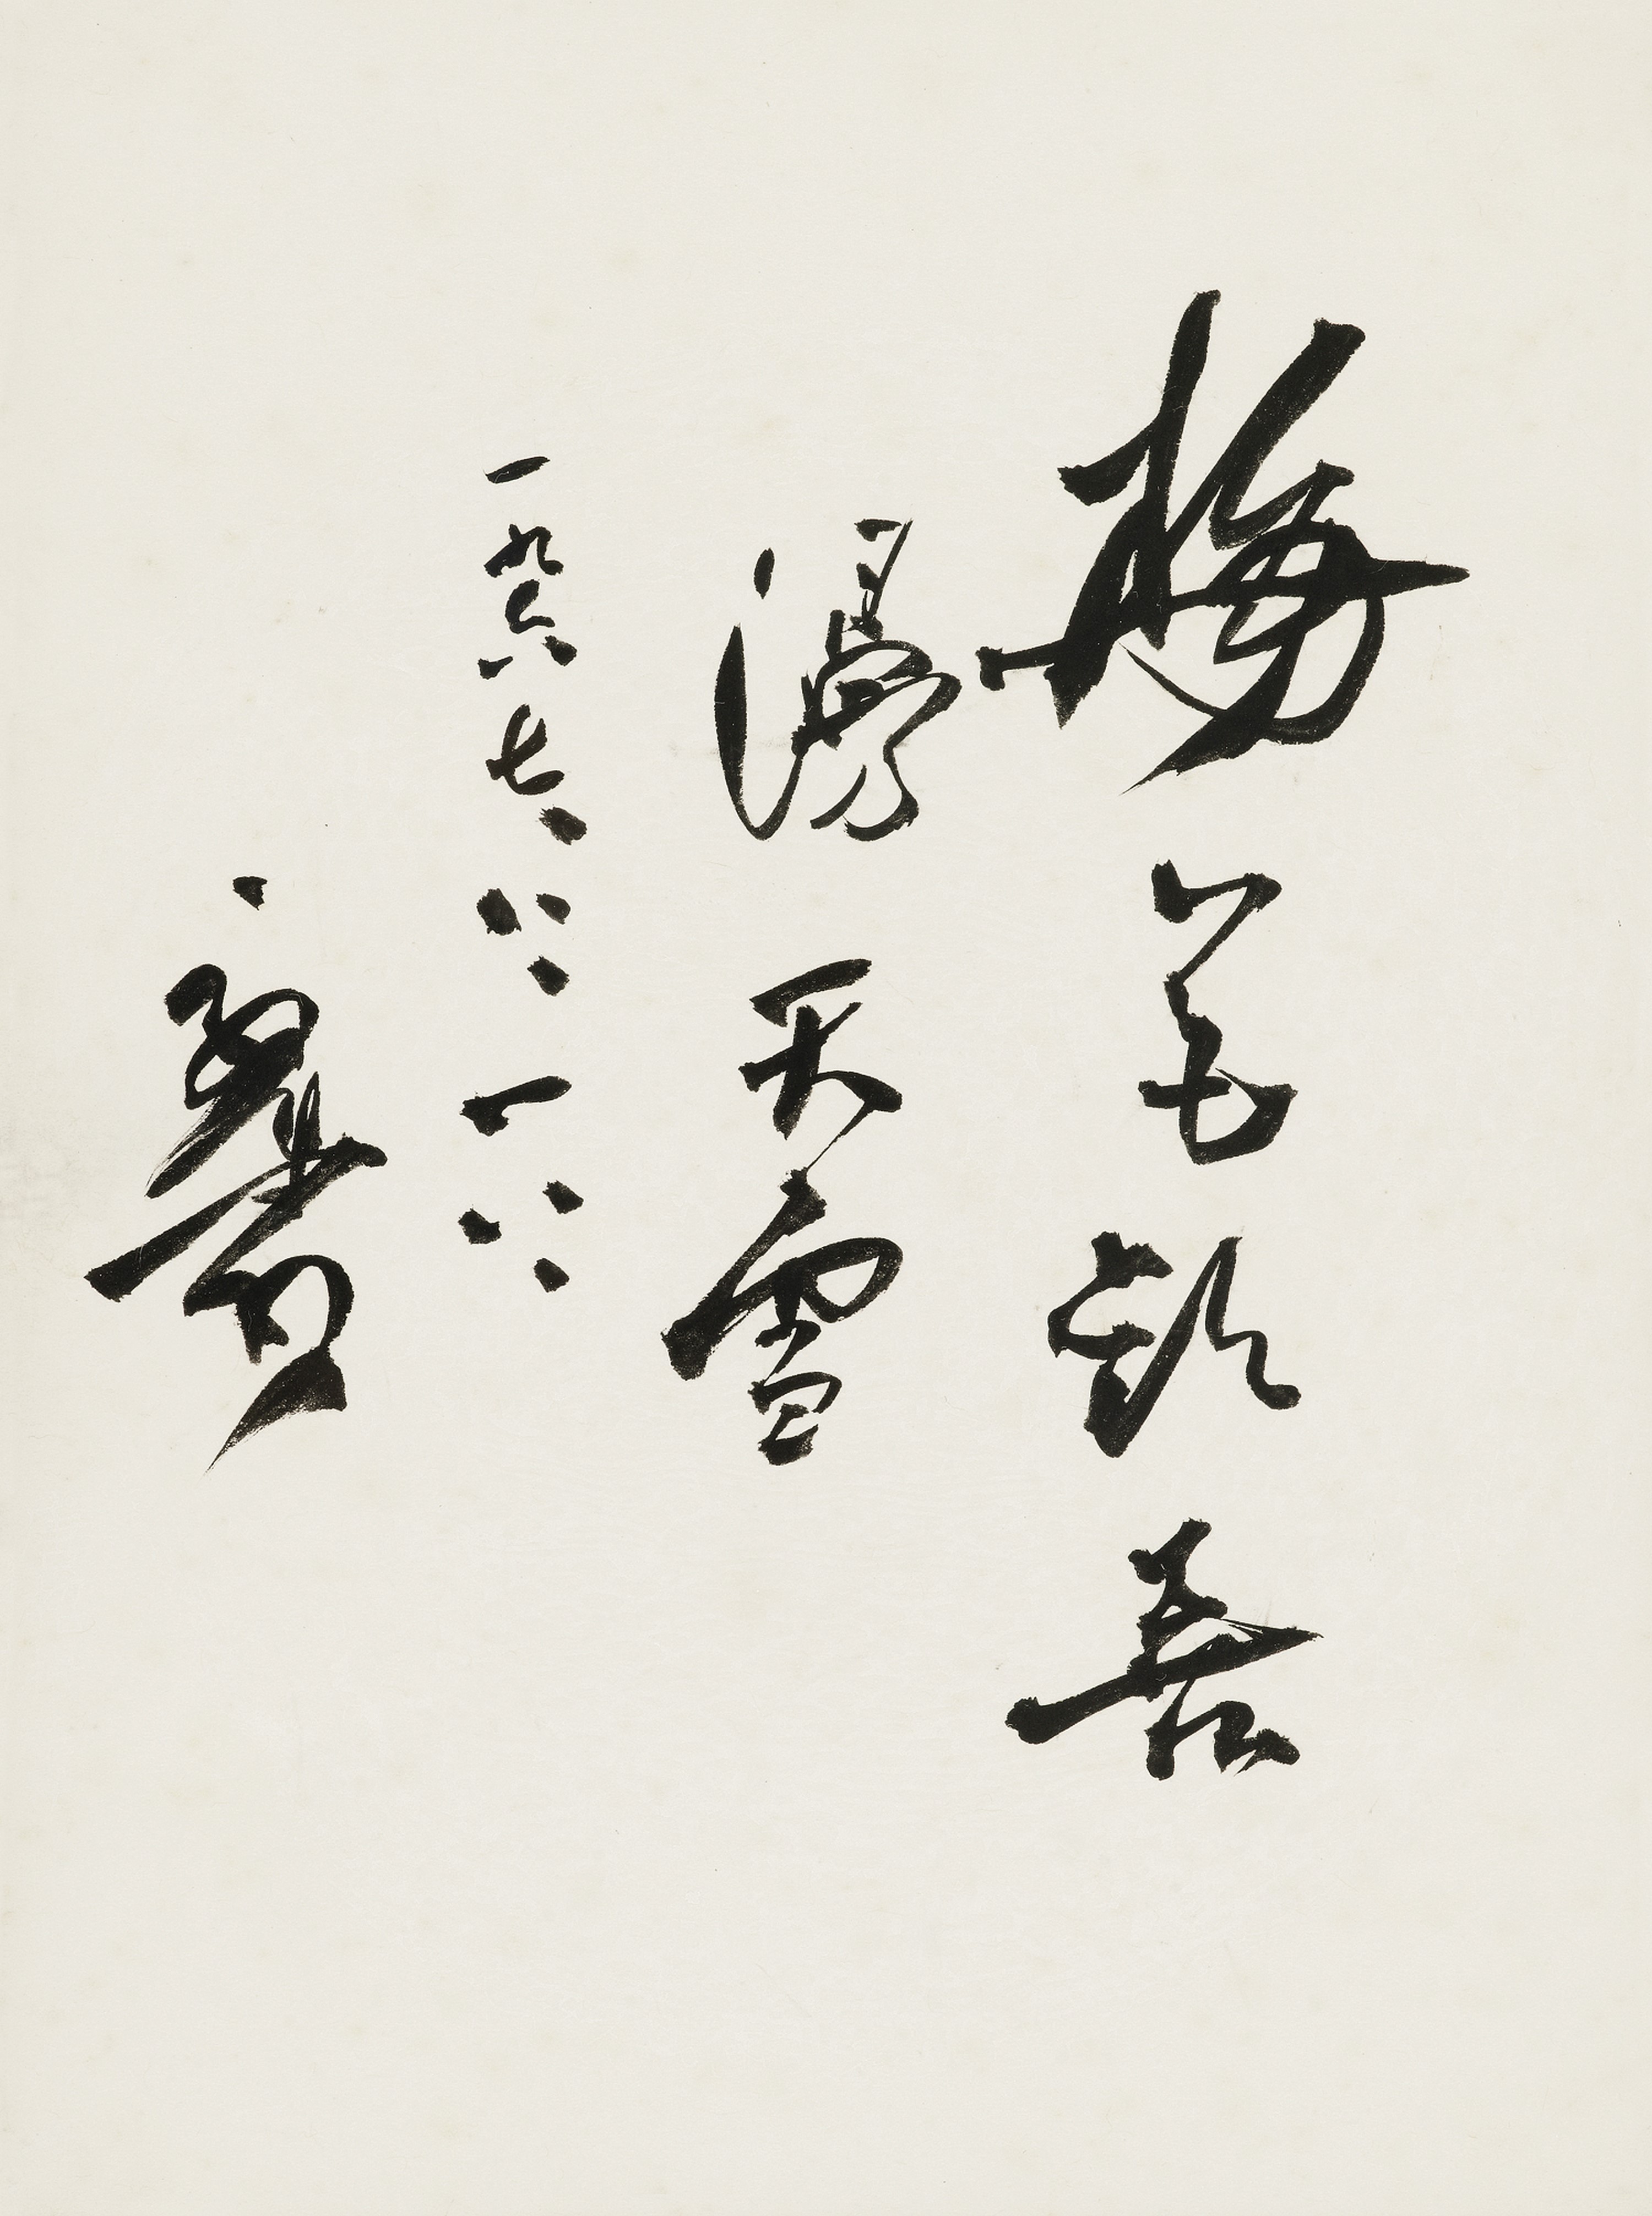 梅花歡喜
漫天雪
一九六七、八、一八、